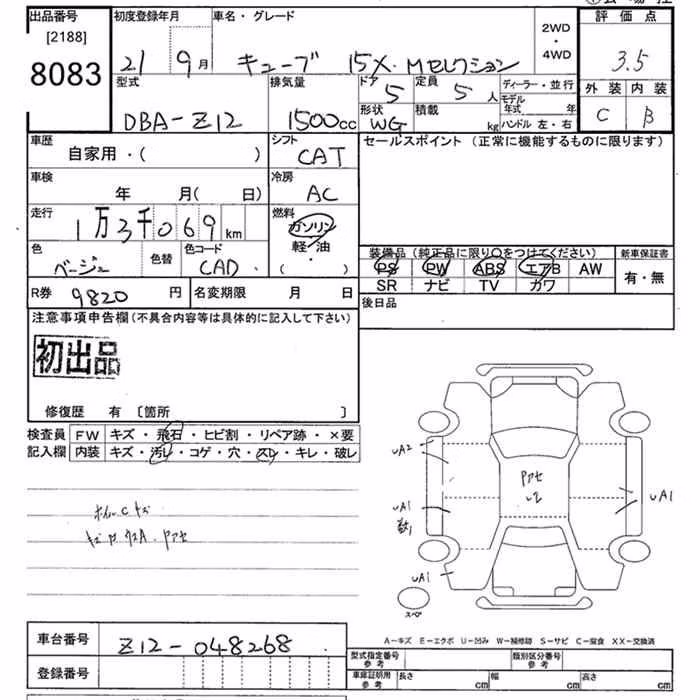 出品番号
[2188]
8083
初度登録年月
21 9月
車名・グレード
キューブ 15X Mセレクション
2WD
・
4WD
評価点
3.5
外装 内装
C B
型式
DBA-Z12
排気量
1500cc
ドア
5
定員
5人
形状
WG
積載
kg
ディーラー・並行
モデル年式 年
ハンドル 左・右
車歴
自家用・( )
シフト
CAT
セールスポイント (正常に機能するものに限ります)
車検
年 月( 日)
冷房
AC
走行
1万3千069km
燃料
ガソリン
軽・油
( ・ )
色
ベージュ
色替
色コード
CAD
装備品 (純正品に限り○をつけてください)
PS PW ABS エアB AW
SR ナビ TV カワ
新車保証書
有・無
R券 9820円
名変期限 月 日
後日品
注意事項申告欄(不具合内容等は具体的に記入して下さい)
初出品
修復歴 有 [箇所 ]
検査員
記入欄
FW キズ・飛石・ヒビ割・リペア跡・×要
内装 キズ・汚レ・コゲ・穴・スレ・キレ・破レ
uA2
uA1
uA1
uA1
アクセ
スペ
A-キズ E-エクボ U-凹み W-補修跡 S-サビ C-腐食 XX-交換済
車台番号
Z12-048268
登録番号
型式指定番号
参考
類別区分番号
参考
車庫証明用
参考
長さ cm
幅 cm
高さ cm